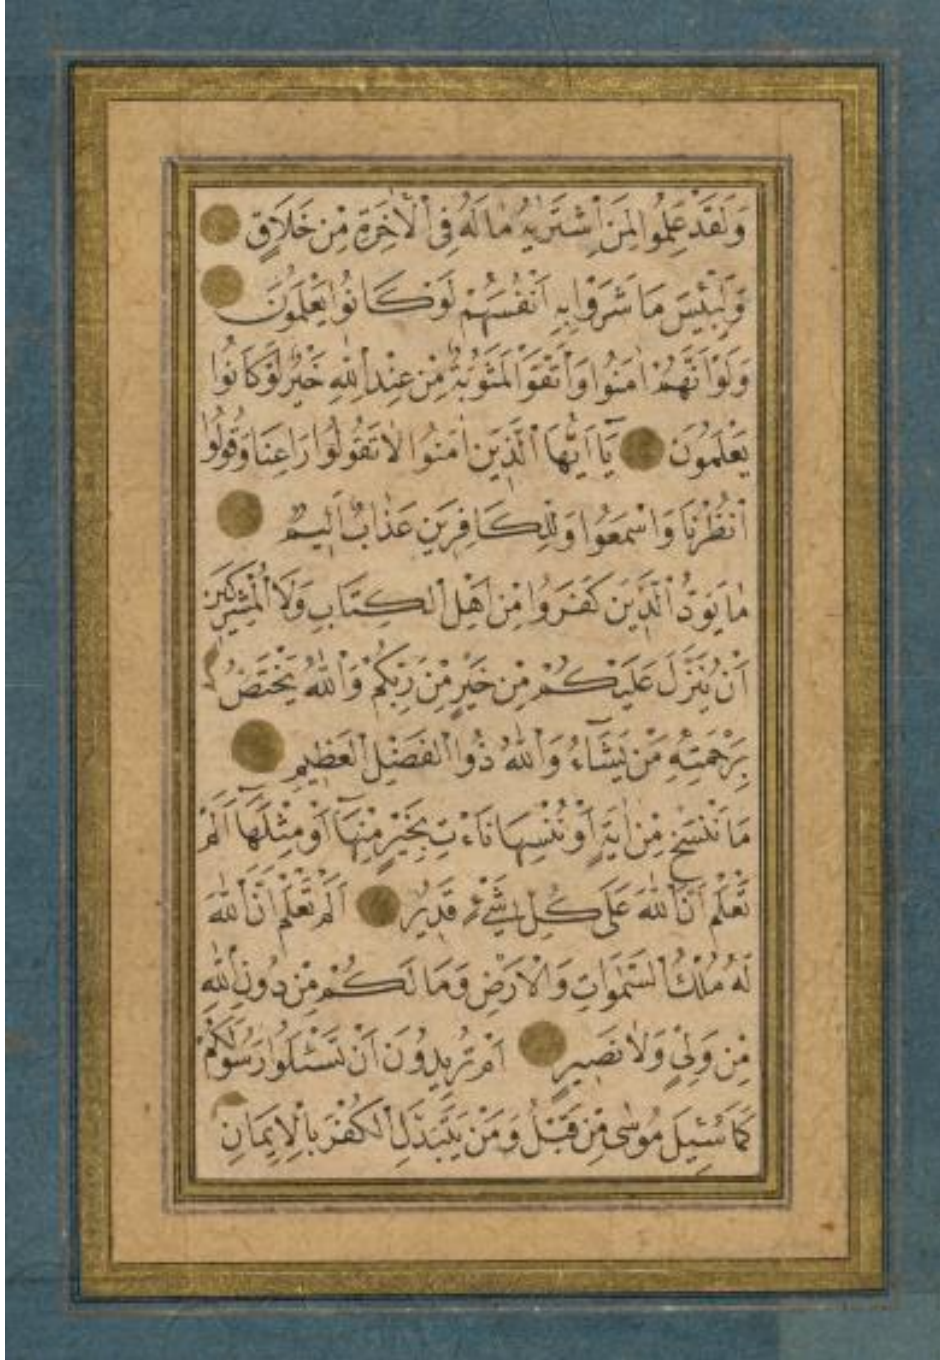 وَلَقَدْ عَلِمُوا لَمَنِ اشْتَرٰيهُ مَا لَهُ فِي الْاٰخِرَةِ مِنْ خَلَاقٍ
وَلَبِئْسَ مَا شَرَوْا بِهِ اَنْفُسَهُمْ لَوْ كَانُوا يَعْلَمُونَ
وَلَوْ اَنَّهُمْ اٰمَنُوا وَاتَّقَوْا لَمَثُوبَةٌ مِنْ عِنْدِ اللّٰهِ خَيْرٌ لَوْ كَانُوا
يَعْلَمُونَ يَآ اَيُّهَا الَّذِينَ اٰمَنُوا لَا تَقُولُوا رَاعِنَا وَقُولُوا
انْظُرْنَا وَاسْمَعُوا وَلِلْكَافِرِينَ عَذَابٌ اَلِيمٌ
مَا يَوَدُّ الَّذِينَ كَفَرُوا مِنْ اَهْلِ الْكِتَابِ وَلَا الْمُشْرِكِينَ
اَنْ يُنَزَّلَ عَلَيْكُمْ مِنْ خَيْرٍ مِنْ رَبِّكُمْ وَاللّٰهُ يَخْتَصُّ
بِرَحْمَتِهِ مَنْ يَشَآءُ وَاللّٰهُ ذُو الْفَضْلِ الْعَظِيمِ
مَا نَنْسَخْ مِنْ اٰيَةٍ اَوْ نُنْسِهَا نَاْتِ بِخَيْرٍ مِنْهَآ اَوْ مِثْلِهَآ اَلَمْ
تَعْلَمْ اَنَّ اللّٰهَ عَلَى كُلِّ شَيْءٍ قَدِيرٌ اَلَمْ تَعْلَمْ اَنَّ اللّٰهَ
لَهُ مُلْكُ السَّمٰوَاتِ وَالْاَرْضِ وَمَا لَكُمْ مِنْ دُونِ اللّٰهِ
مِنْ وَلِيٍّ وَلَا نَصِيرٍ اَمْ تُرِيدُونَ اَنْ تَسْئَلُوا رَسُولَكُمْ
كَمَا سُئِلَ مُوسٰى مِنْ قَبْلُ وَمَنْ يَتَبَدَّلِ الْكُفْرَ بِالْاِيمَانِ